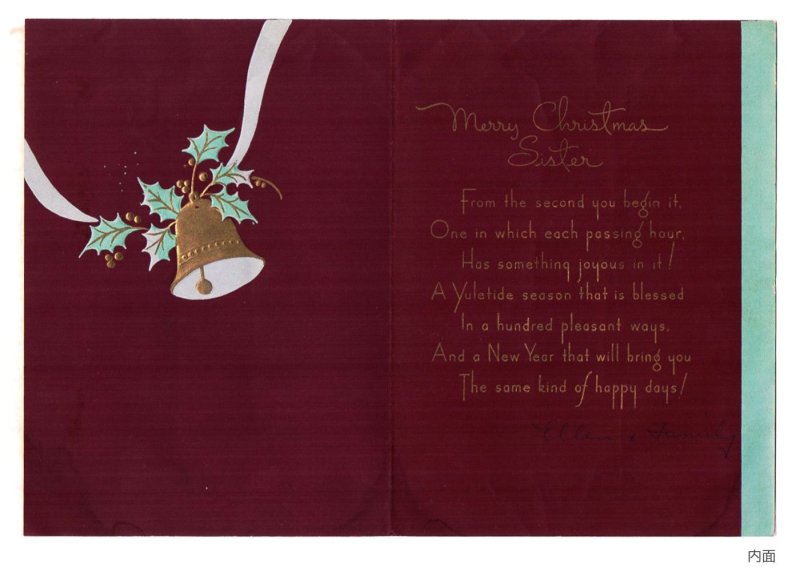 Merry Christmas
Sister
From the second you begin it,
One in which each passing hour,
Has something joyous in it!
A Yuletide season that is blessed
In a hundred pleasant ways,
And a New Year that will bring you
The same kind of happy days!
& Family
内面